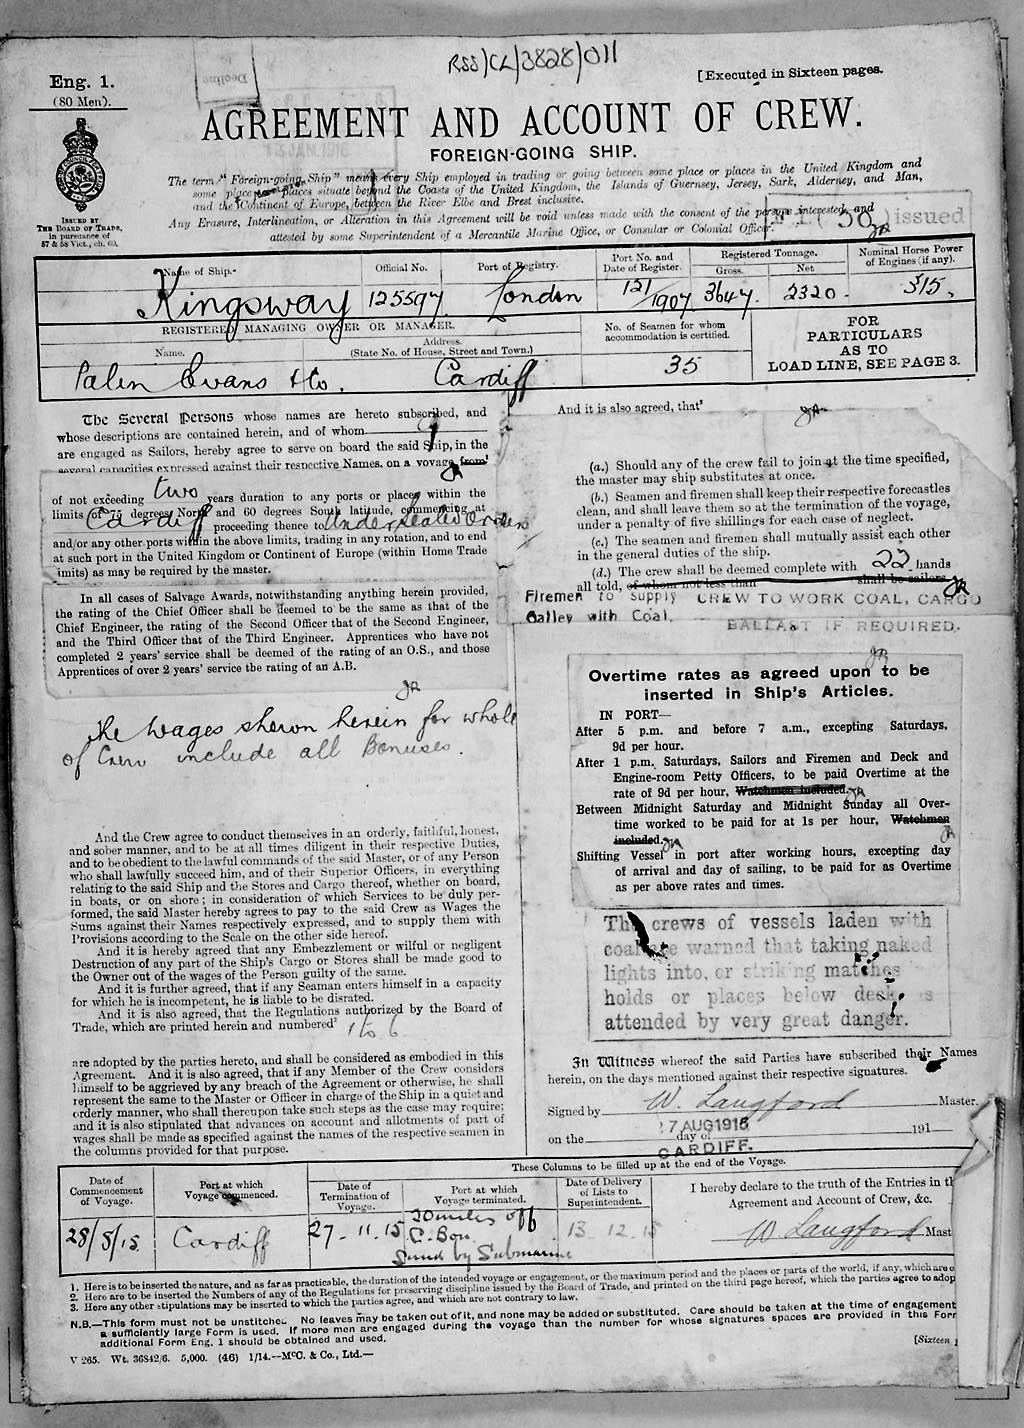 RSS/CL/3828/011
Decline
[Executed in Sixteen pages.
Eng. 1.
(80 Men).
AGREEMENT AND ACCOUNT OF CREW.
FOREIGN-GOING SHIP.
13 JAN. 1916
ISSUED BY
THE BOARD OF TRADE,
in pursuance of
57 & 58 Vict., ch. 60.
The term "Foreign-going Ship" means every Ship employed in trading or going between some place or places in the United Kingdom and
some place or places situate beyond the Coasts of the United Kingdom, the Islands of Guernsey, Jersey, Sark, Alderney, and Man,
and the Continent of Europe, between the River Elbe and Brest inclusive.
Any Erasure, Interlineation, or Alteration in this Agreement will be void unless made with the consent of the persons interested, and
attested by some Superintendent of a Mercantile Marine Office, or Consular or Colonial Officer.
issued
JR
Name of Ship.
Official No.
Port of Registry.
Port No. and
Date of Register.
Registered Tonnage.
Gross.
Net
Nominal Horse Power
of Engines (if any).
Kingsway
125597
London
121/1907
3647.
2320.
315.
REGISTERED MANAGING OWNER OR MANAGER.
Name.
Address.
(State No. of House, Street and Town.)
No. of Seamen for whom
accommodation is certified.
FOR
PARTICULARS
AS TO
LOAD LINE, SEE PAGE 3.
Palin Evans & Co.
Cardiff
35
The Several Persons whose names are hereto subscribed, and
whose descriptions are contained herein, and of whom
are engaged as Sailors, hereby agree to serve on board the said Ship, in the
several capacities expressed against their respective Names, on a voyage from¹
JR
of not exceeding two years duration to any ports or places within the
limits of 75 degrees North and 60 degrees South latitude, commencing at
Cardiff proceeding thence to Under Sealed Orders
and/or any other ports within the above limits, trading in any rotation, and to end
at such port in the United Kingdom or Continent of Europe (within Home Trade
limits) as may be required by the master.
In all cases of Salvage Awards, notwithstanding anything herein provided,
the rating of the Chief Officer shall be deemed to be the same as that of the
Chief Engineer, the rating of the Second Officer that of the Second Engineer,
and the Third Officer that of the Third Engineer. Apprentices who have not
completed 2 years' service shall be deemed of the rating of an O.S., and those
Apprentices of over 2 years' service the rating of an A.B.
JR
The Wages shewn herein for whole
of Crew include all Bonuses.
And the Crew agree to conduct themselves in an orderly, faithful, honest,
and sober manner, and to be at all times diligent in their respective Duties,
and to be obedient to the lawful commands of the said Master, or of any Person
who shall lawfully succeed him, and of their Superior Officers, in everything
relating to the said Ship and the Stores and Cargo thereof, whether on board,
in boats, or on shore; in consideration of which Services to be duly per-
formed, the said Master hereby agrees to pay to the said Crew as Wages the
Sums against their Names respectively expressed, and to supply them with
Provisions according to the Scale on the other side hereof.
And it is hereby agreed that any Embezzlement or wilful or negligent
Destruction of any part of the Ship's Cargo or Stores shall be made good to
the Owner out of the wages of the Person guilty of the same.
And it is further agreed, that if any Seaman enters himself in a capacity
for which he is incompetent, he is liable to be disrated.
And it is also agreed, that the Regulations authorized by the Board of
Trade, which are printed herein and numbered² 1 to 6
are adopted by the parties hereto, and shall be considered as embodied in this
Agreement. And it is also agreed, that if any Member of the Crew considers
himself to be aggrieved by any breach of the Agreement or otherwise, he shall
represent the same to the Master or Officer in charge of the Ship in a quiet and
orderly manner, who shall thereupon take such steps as the case may require;
and it is also stipulated that advances on account and allotments of part of
wages shall be made as specified against the names of the respective seamen in
the columns provided for that purpose.
And it is also agreed, that³
JR
(a.) Should any of the crew fail to join at the time specified,
the master may ship substitutes at once.
(b.) Seamen and firemen shall keep their respective forecastles
clean, and shall leave them so at the termination of the voyage,
under a penalty of five shillings for each case of neglect.
(c.) The seamen and firemen shall mutually assist each other
in the general duties of the ship.
(d.) The crew shall be deemed complete with 22 hands
all told, of whom not less than shall be sailors. JR
Firemen to supply CREW TO WORK COAL, CARGO
Galley with Coal. BALLAST IF REQUIRED.
JR
Overtime rates as agreed upon to be
inserted in Ship's Articles.
IN PORT—
After 5 p.m. and before 7 a.m., excepting Saturdays,
9d per hour.
After 1 p.m. Saturdays, Sailors and Firemen and Deck and
Engine-room Petty Officers, to be paid Overtime at the
rate of 9d per hour, Watchmen included. JR
Between Midnight Saturday and Midnight Sunday all Over-
time worked to be paid for at 1s per hour, Watchmen
included. JR
Shifting Vessel in port after working hours, excepting day
of arrival and day of sailing, to be paid for as Overtime
as per above rates and times.
The crews of vessels laden with
coal are warned that taking naked
lights into, or striking matches
holds or places below deck, is
attended by very great danger.
In Witness whereof the said Parties have subscribed their Names
herein, on the days mentioned against their respective signatures.
Signed by W. Langford Master.
on the 27 AUG 1915 day of 191
CARDIFF.
These Columns to be filled up at the end of the Voyage.
Date of
Commencement
of Voyage.
Port at which
Voyage commenced.
Date of
Termination of
Voyage.
Port at which
Voyage terminated.
Date of Delivery
of Lists to
Superintendent.
I hereby declare to the truth of the Entries in th
Agreement and Account of Crew, &c.
28/8/15
Cardiff
27.11.15
20 miles off
C. Bon
Sunk by Submarine
13.12.15
W Langford Mast
1. Here is to be inserted the nature, and as far as practicable, the duration of the intended voyage or engagement, or the maximum period and the places or parts of the world, if any, which are e
2. Here are to be inserted the Numbers of any of the Regulations for preserving discipline issued by the Board of Trade, and printed on the third page hereof, which the parties agree to adop
3. Here any other stipulations may be inserted to which the parties agree, and which are not contrary to law.
N.B.—This form must not be unstitched. No leaves may be taken out of it, and none may be added or substituted. Care should be taken at the time of engagement
a sufficiently large Form is used. If more men are engaged during the voyage than the number for whose signatures spaces are provided in this Forr
additional Form Eng. 1 should be obtained and used.
[Sixteen
V 265. Wt. 36842/6. 5,000. (46) 1/14.--McC. & Co., Ltd.—